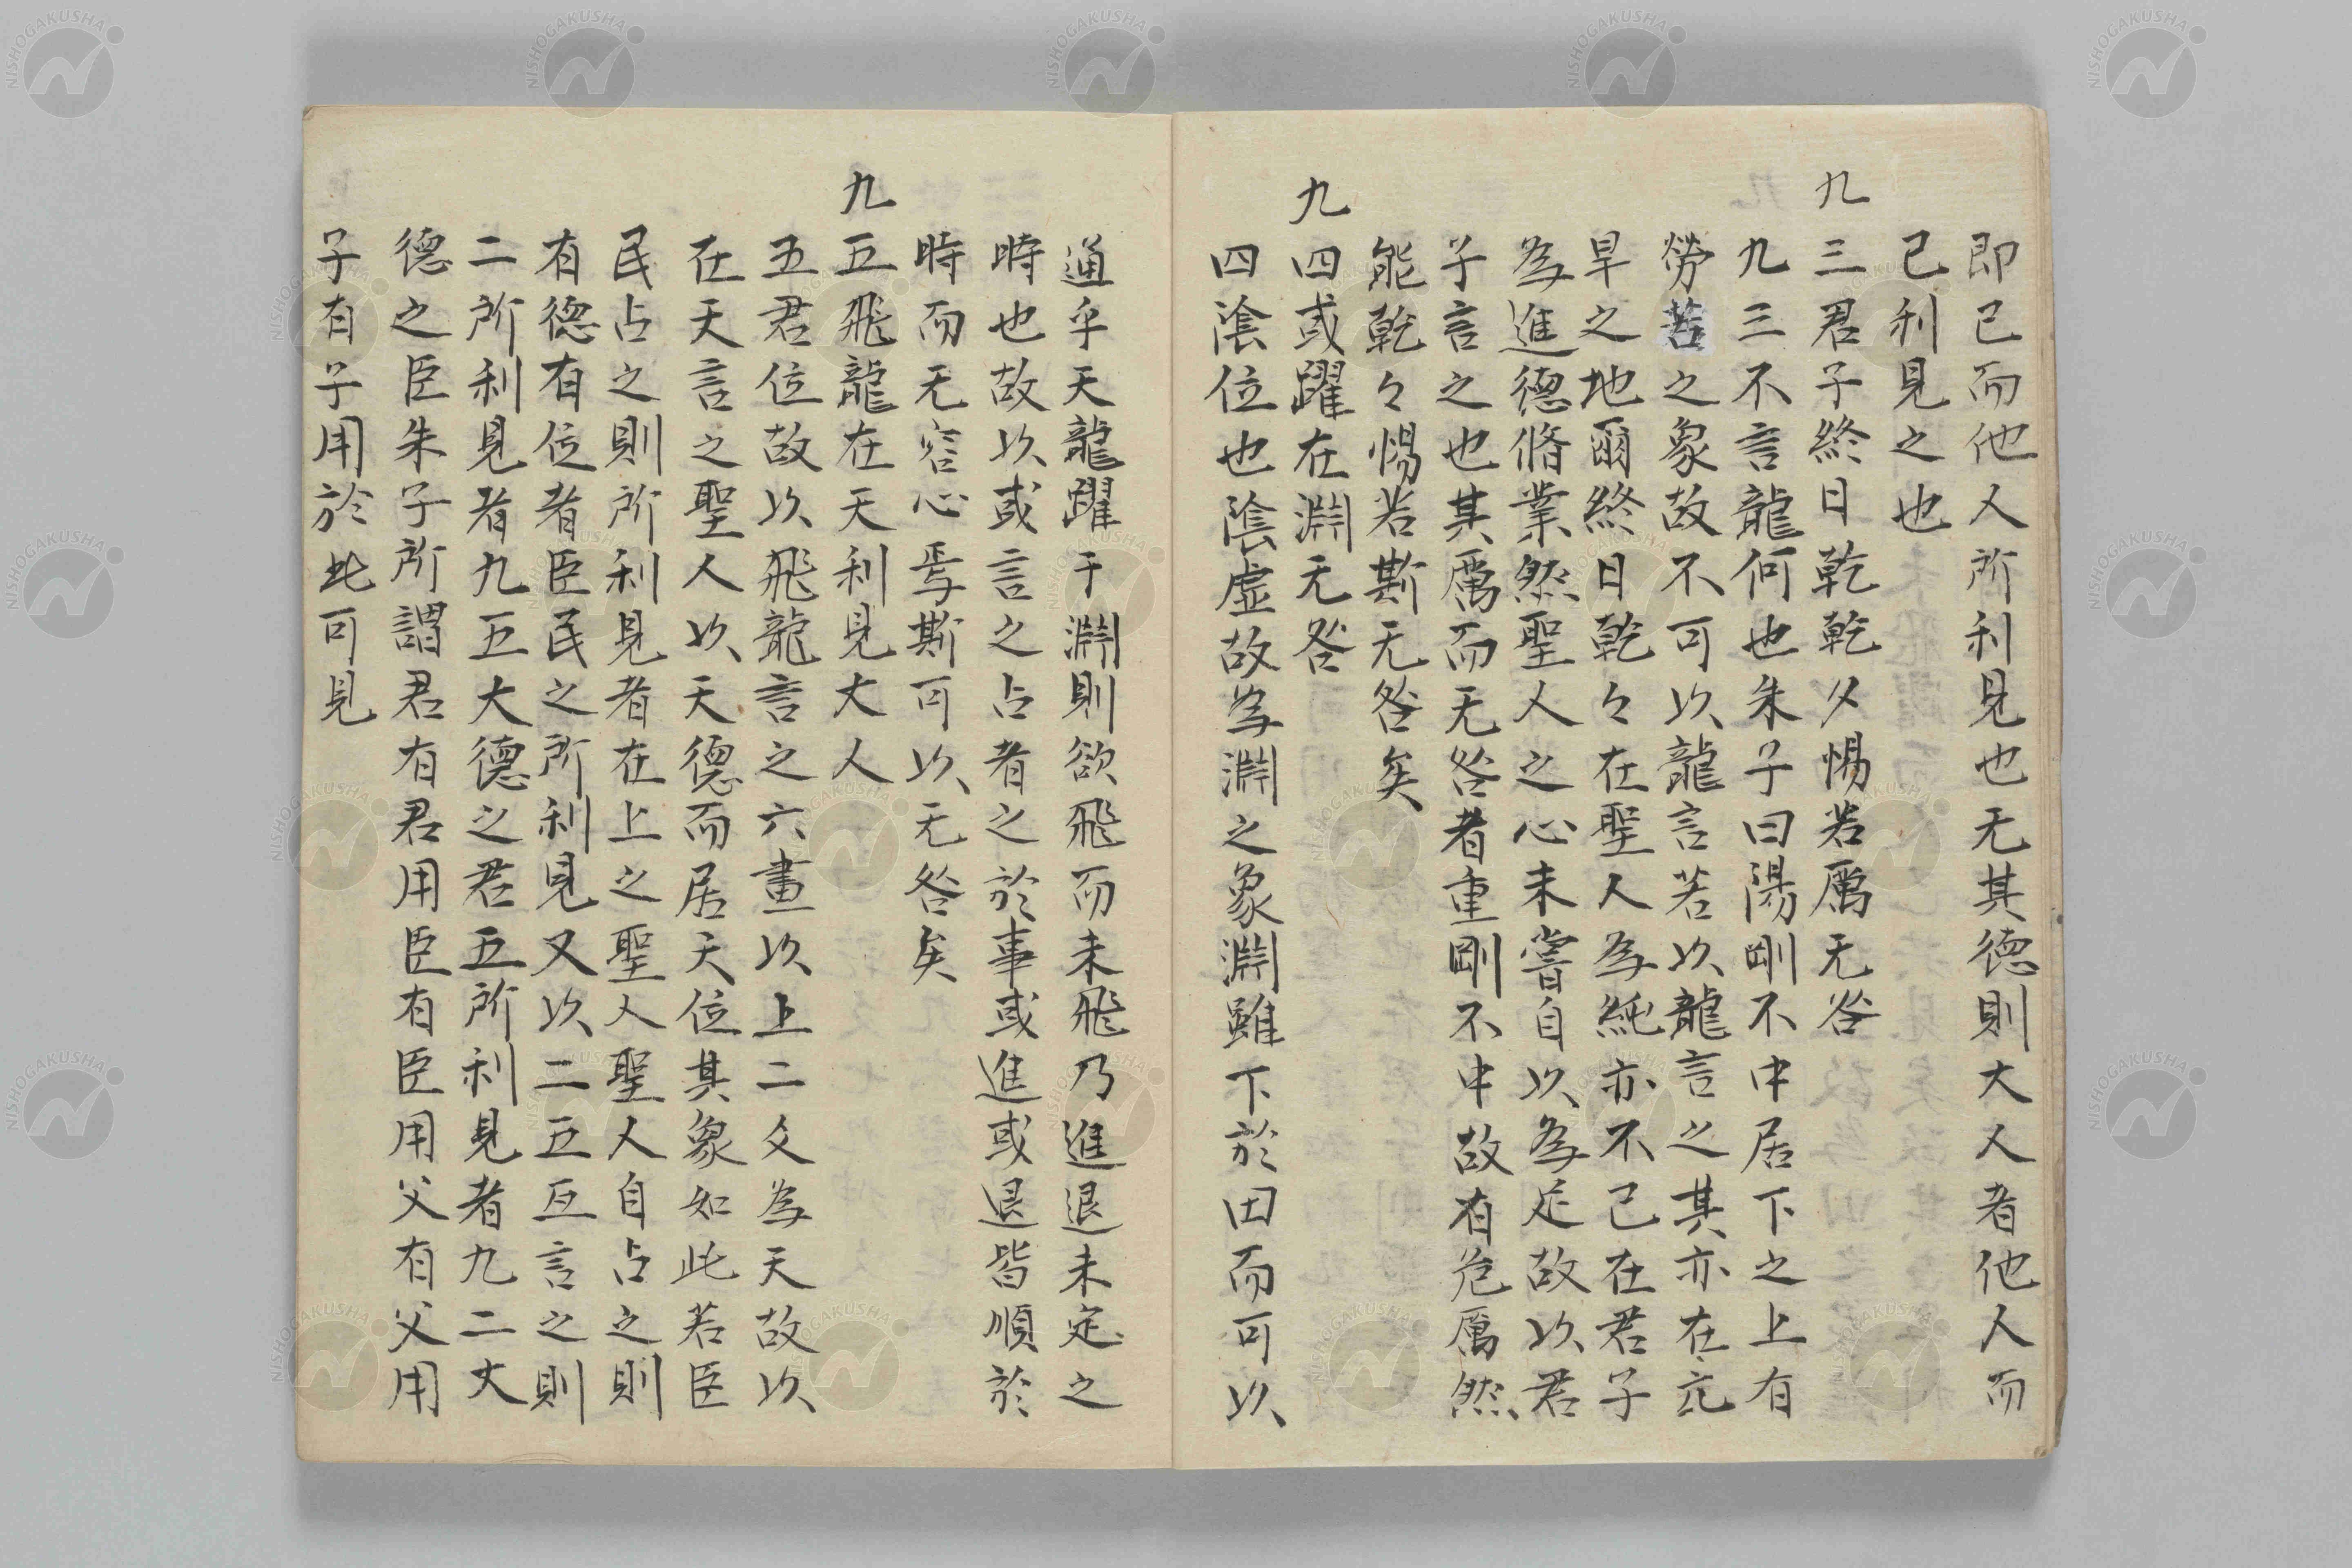 即已而他人所利見也无其德則大人者他人而
已利見之也
九三君子終日乾乾夕惕若厲无咎
九三不言龍何也朱子曰陽剛不中居下之上有
勞苦之象故不可以龍言若以龍言之其亦在亢
旱之地爾終日乾々在聖人為純亦不已在君子
為進德脩業然聖人之心未嘗自以為足故以君
子言之也其厲而无咎者重剛不中故有危厲然
能乾々惕若斯无咎矣
九四或躍在淵无咎
四陰位也陰虛故為淵之象淵雖下於田而可以
通乎天龍躍于淵則欲飛而未飛乃進退未定之
時也故以或言之占者之於事或進或退皆順於
時而无容心焉斯可以无咎矣
九五飛龍在天利見大人
五君位故以飛龍言之六畫以上二爻為天故以
在天言之聖人以天德而居天位其象如此若臣
民占之則所利見者在上之聖人聖人自占之則
有德有位者臣民之所利見又以二五互言之則
二所利見者九五大德之君五所利見者九二大
德之臣朱子所謂君有君用臣有臣用父有父用
子有子用於此可見
NISHOGAKUSHA